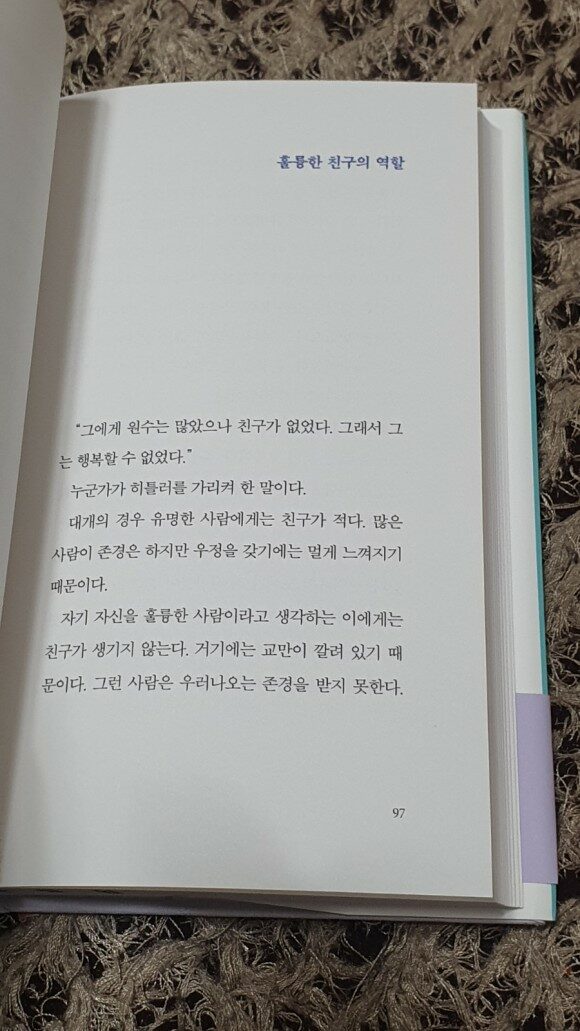 훌륭한 친구의 역할
“그에게 원수는 많았으나 친구가 없었다. 그래서 그
는 행복할 수 없었다.”
누군가가 히틀러를 가리켜 한 말이다.
대개의 경우 유명한 사람에게는 친구가 적다. 많은
사람이 존경은 하지만 우정을 갖기에는 멀게 느껴지기
때문이다.
자기 자신을 훌륭한 사람이라고 생각하는 이에게는
친구가 생기지 않는다. 거기에는 교만이 깔려 있기 때
문이다. 그런 사람은 우러나오는 존경을 받지 못한다.
97